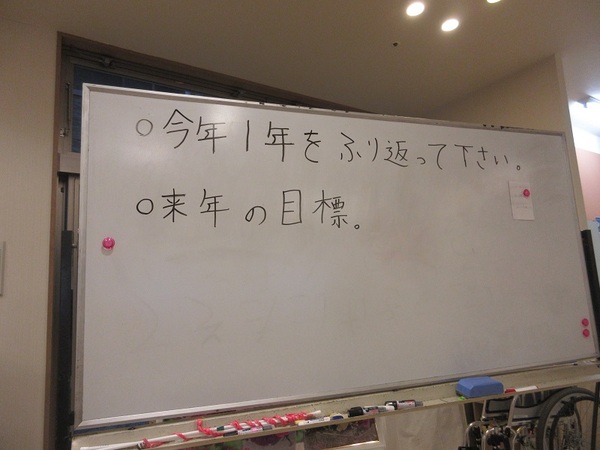 ○今年1年をふり返って下さい。
○来年の目標。